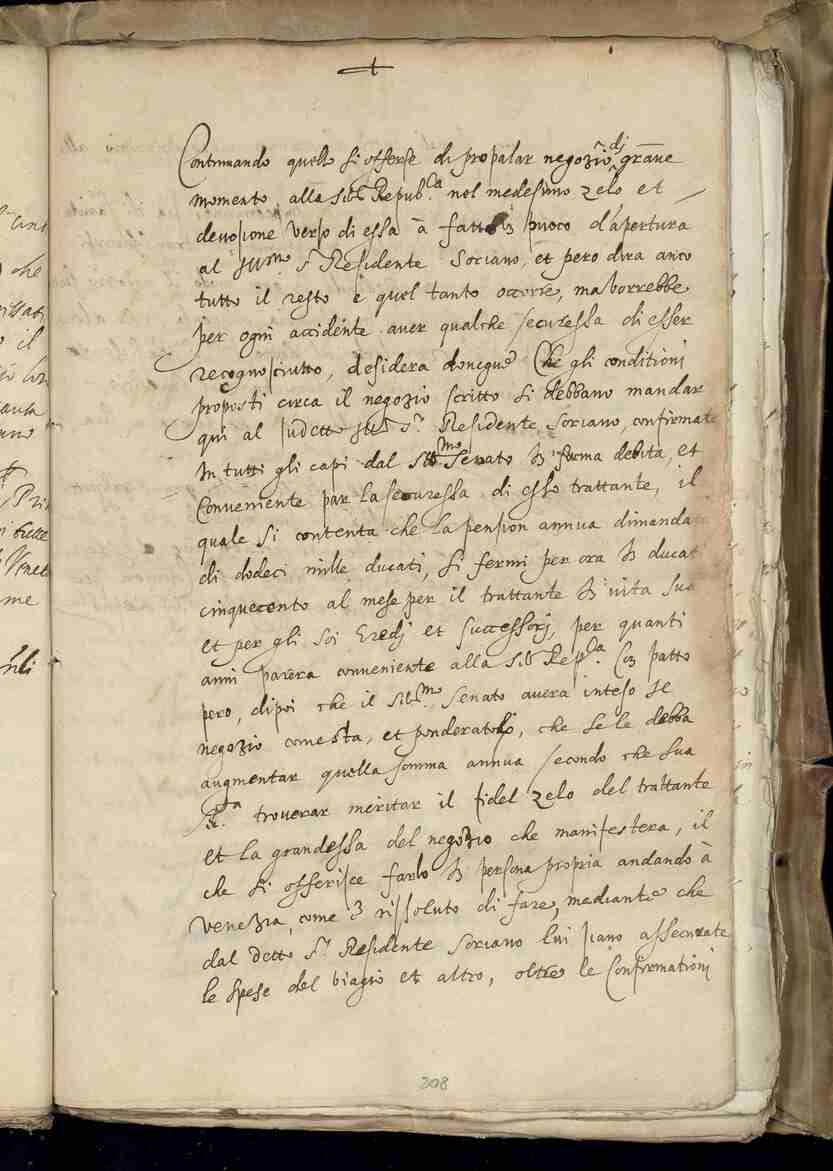 Continuando quello si offerse di propalar negozio di grave
momento alla Ser. Repub.ca nel medesimo zelo et
devosione verso di essa à fatto un puoco d'apertura
al Ill.mo S.r Residente Soriano, et pero dira anco
tutto il resto e quel tanto occorre, ma vorrebbe
per ogni accidente aver qualche securessa di esser
recognosciutto, desidera doncque Che gli conditioni
proposti circa il negozio scritto si debbano mandar
qui al sudetto Ill. S.r Residente Soriano, confirmate
In tutti gli capi dal Ser.mo Senato In forma debita, et
Conveniente par la securessa di esso trattante, il
quale si contenta che la pension annua dimandata
di dodeci mille ducati, si fermi per ora In ducati
cinquecento al mese per il trattante In vita sua
et per gli soi Eredj et successorj, per quanti
anni parera conveniente alla Ser. Rep.ca Con patto
pero, dipoi che il Ser.mo Senato avera inteso il
negozio comesta, et ponderatolo, che se le debba
augmentar quella somma annua secondo che sua
S.ta trouerar meritar il fidel zelo del trattante
et la grandessa del negozio che manifestera, il
che si offerisce farlo In persona propria andando à
Venezia, come è rissoluto di fare, mediante che
dal detto S.r Residente Soriano lui siano assecurate
le spese del viagio et altro, oltre le Confirmationi
208